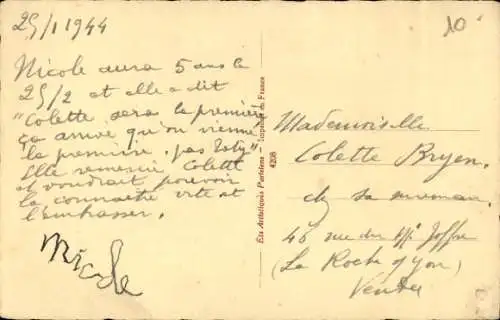 25/1 1944
Nicole aura 5 ans le
25/2 et elle a dit
"Colette sera la première
ça arrive qu'on vienne
la première, pas
Elle remercie Colette
et voudrait pouvoir
la connaître vite et
l'embrasser.
Nicole
Ets Artistiques Parisiens
4208
10
Mademoiselle
Colette Bryen
ch sa maman
46 rue du Mal Joffre
(La Roche s/ Yon)
Vendée